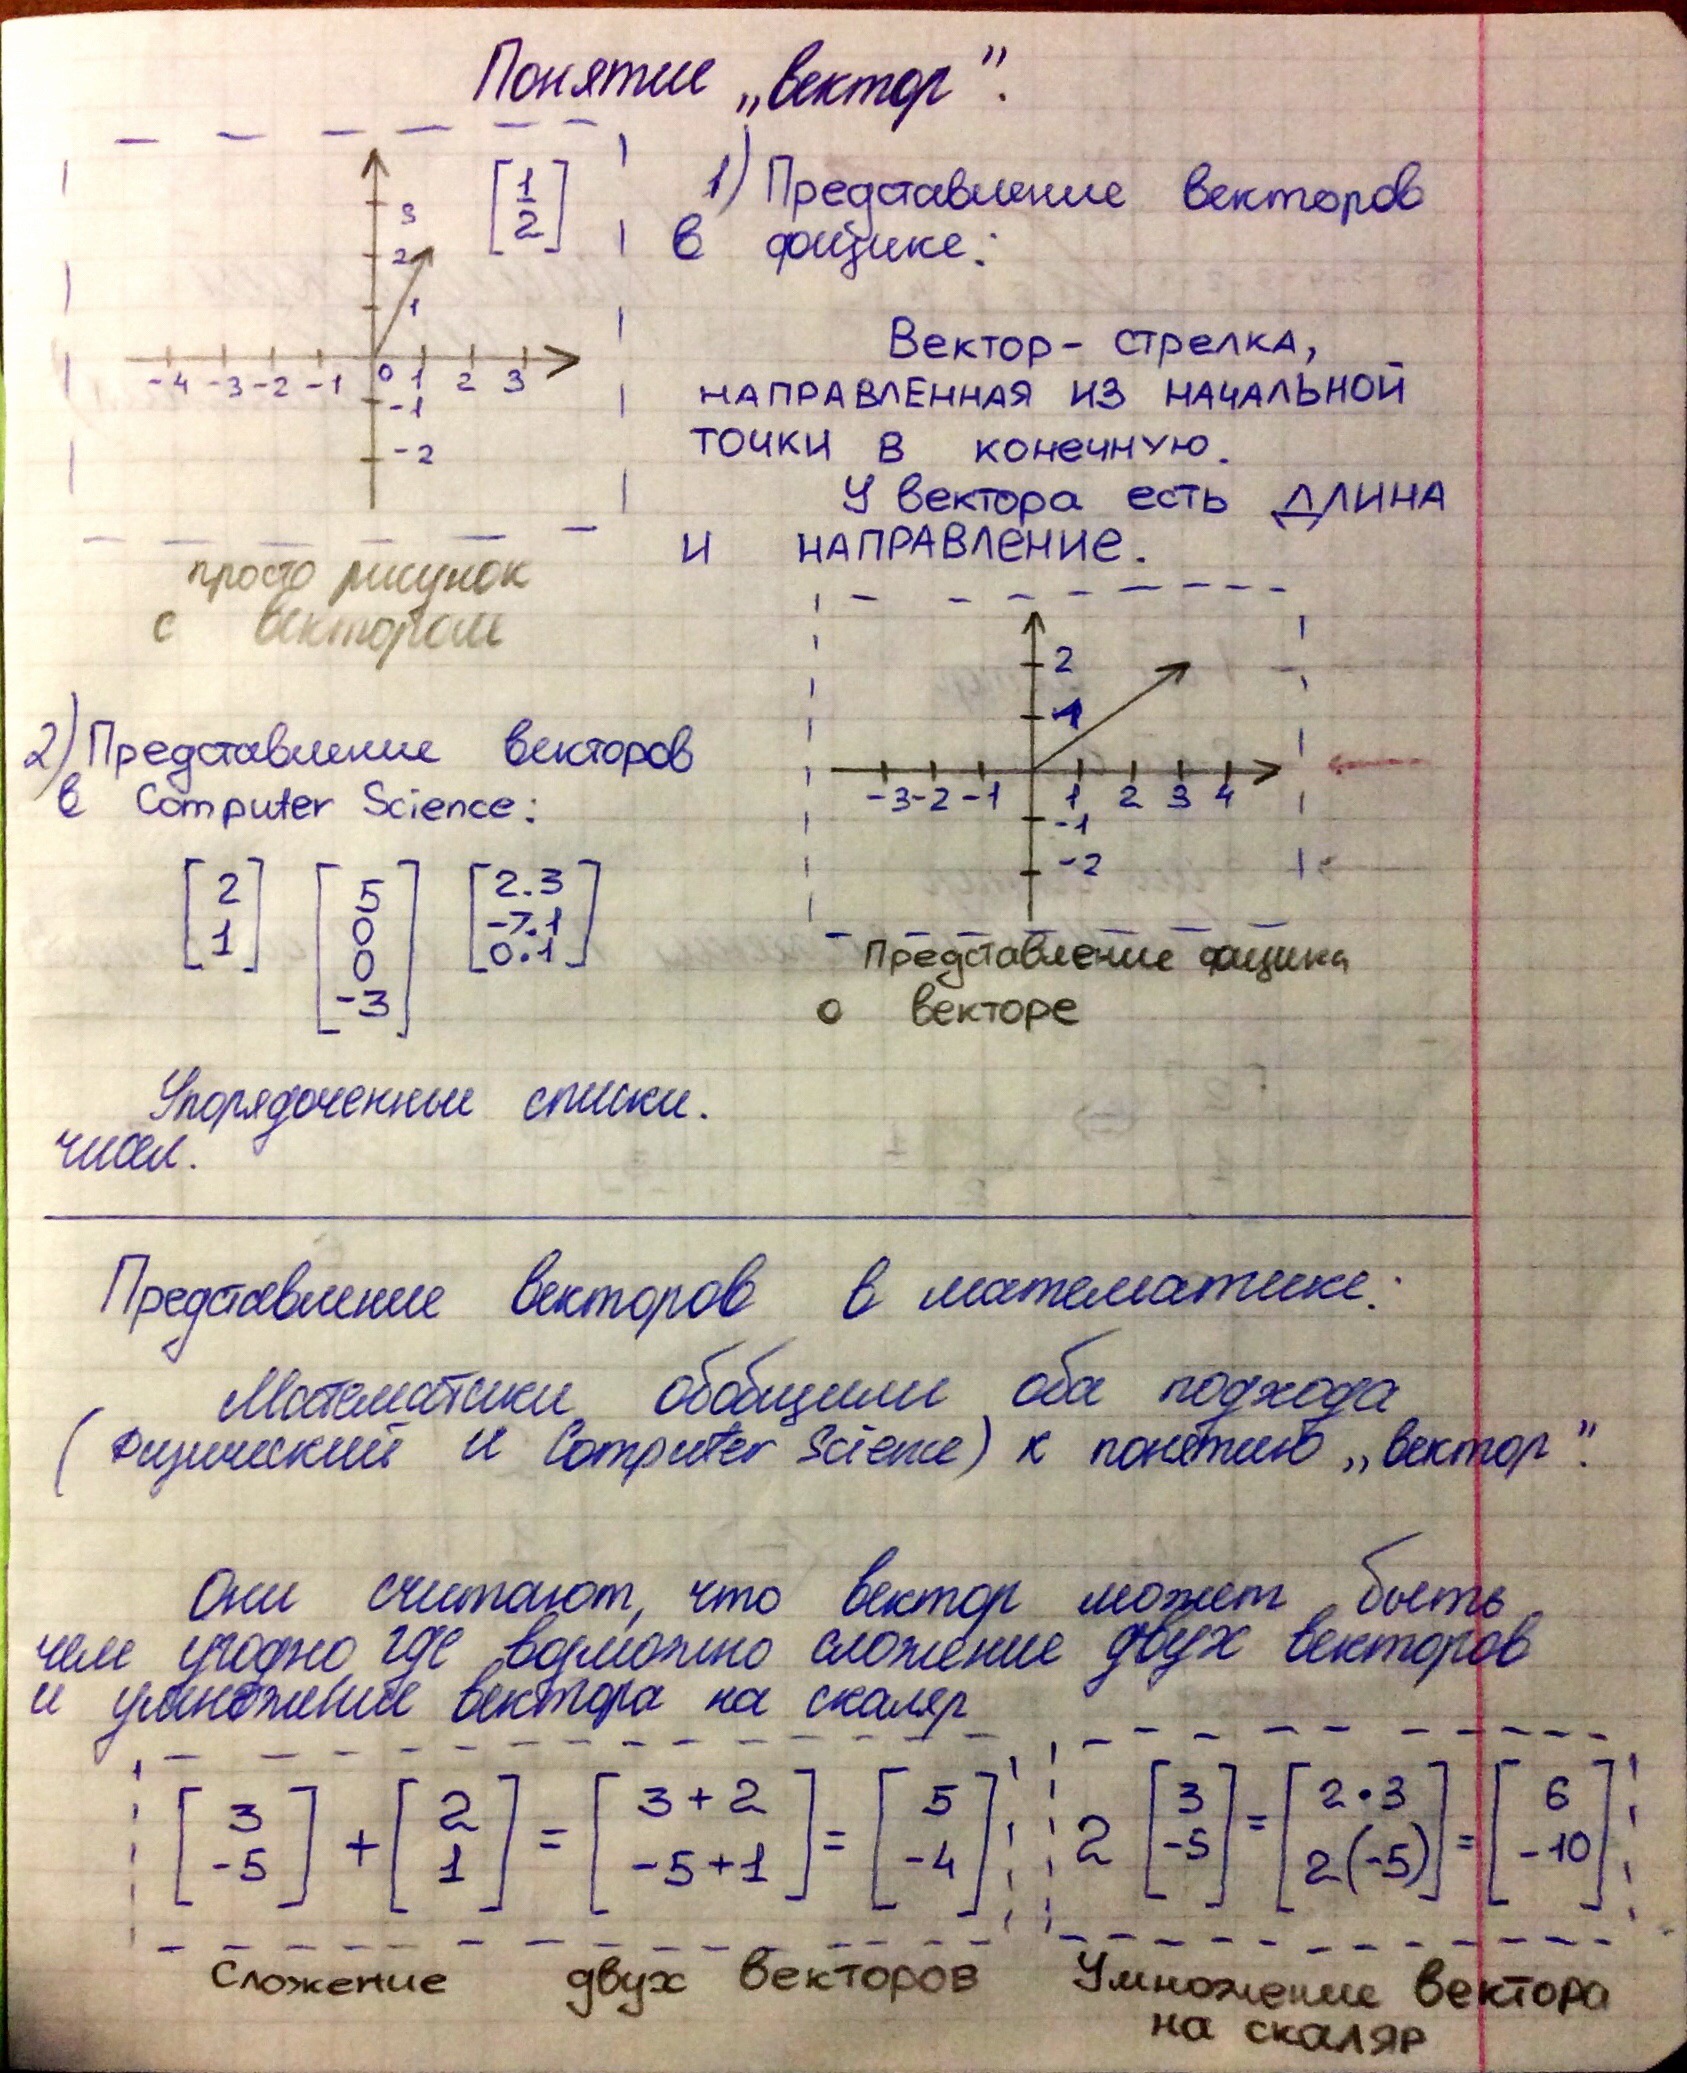 Понятие „вектор".
[1
2]
3
2
1
-4 -3 -2 -1 0 1 2 3
-1
-2
просто рисунок
с вектором
1) Представление векторов
в физике:
Вектор - стрелка,
направленная из начальной
точки в конечную.
У вектора есть длина
и направление.
2
1
-3 -2 -1 1 2 3 4
-1
-2
Представление физика
о векторе
2) Представление векторов
в Computer Science:
[2
1]
[5
0
0
-3]
[2.3
-7.1
0.1]
Упорядоченные списки.
чисел.
Представление векторов в математике:
Математики обобщили оба подхода
(физический и Computer Science) к понятию „вектор".
Они считают, что вектор может быть
чем угодно где возможно сложение двух векторов
и умножение вектора на скаляр
[3
-5] + [2
1] = [3 + 2
-5 + 1] = [5
-4]
Сложение двух векторов
2 [3
-5] = [2 • 3
2(-5)] = [6
-10]
Умножение вектора
на скаляр